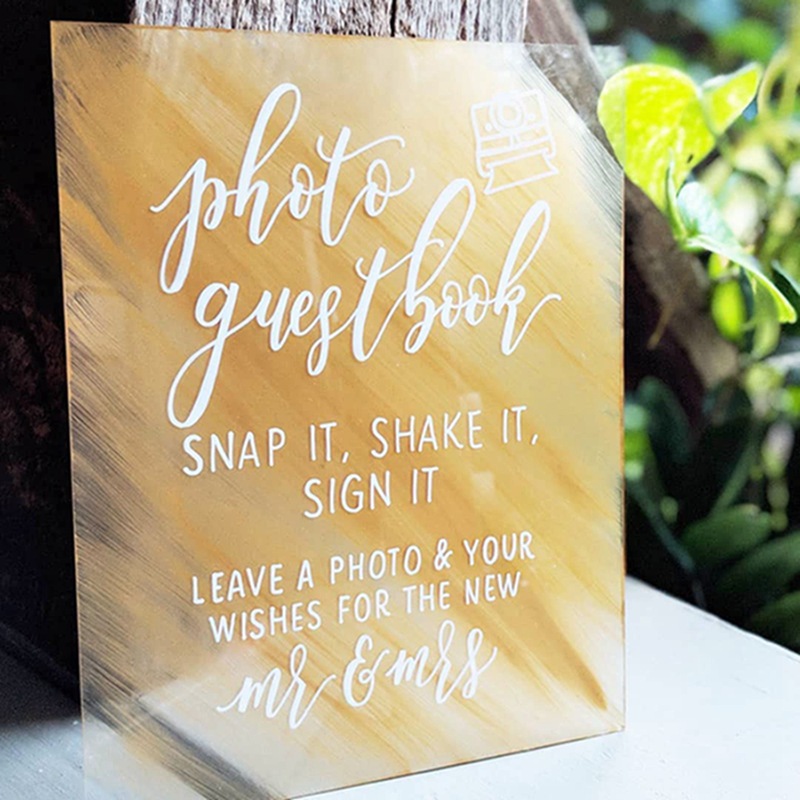 photo
guestbook
SNAP IT, SHAKE IT,
SIGN IT
LEAVE A PHOTO & YOUR
WISHES FOR THE NEW
mr & mrs